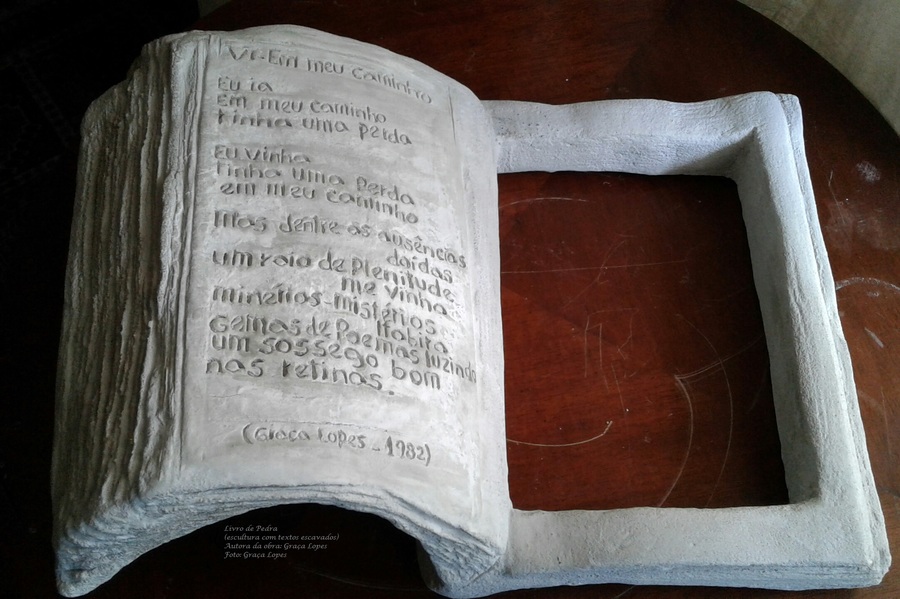 VI-Em meu caminho
Eu ia
Em meu caminho
tinha uma perda
Eu vinha
Tinha uma Perda
em meu caminho
Mas dentre as ausências
daídas
um raio de Plenitude
me vinha
minérios-mistérios
Itabira
Gemas de Poemas luzindo
um sossego bom
nas retinas.
(Graça Lopes - 1982)
Livro de Pedra
(escultura com textos escavados)
Autora da obra: Graça Lopes
Foto: Graça Lopes